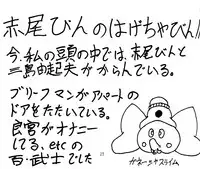 赤尾びんのはげちゃびん!!
今、私の頭の中では、赤尾びんと
三島由起夫がからんでいる。
ブリーフマンがアパートの
ドアをたたいている。
良宮がオナニー
してる、etc の
百・武士でした
ガネーシャスライム